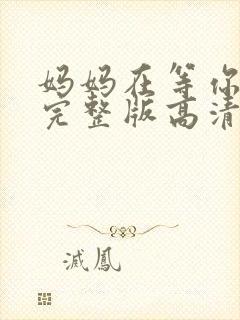 妈妈在等你
完整版高清
滅鳳